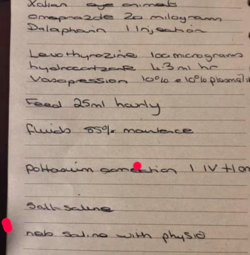 eye
omeprazole 20 milagram
1 injection
Levothyrozine 100 micrograms
hydrocortizone 4.3 ml hr
Vasopression 10% 10%
Feed 25ml hourly
fluids 55%
potassium correction 1 IV
saline
neb saline with physio